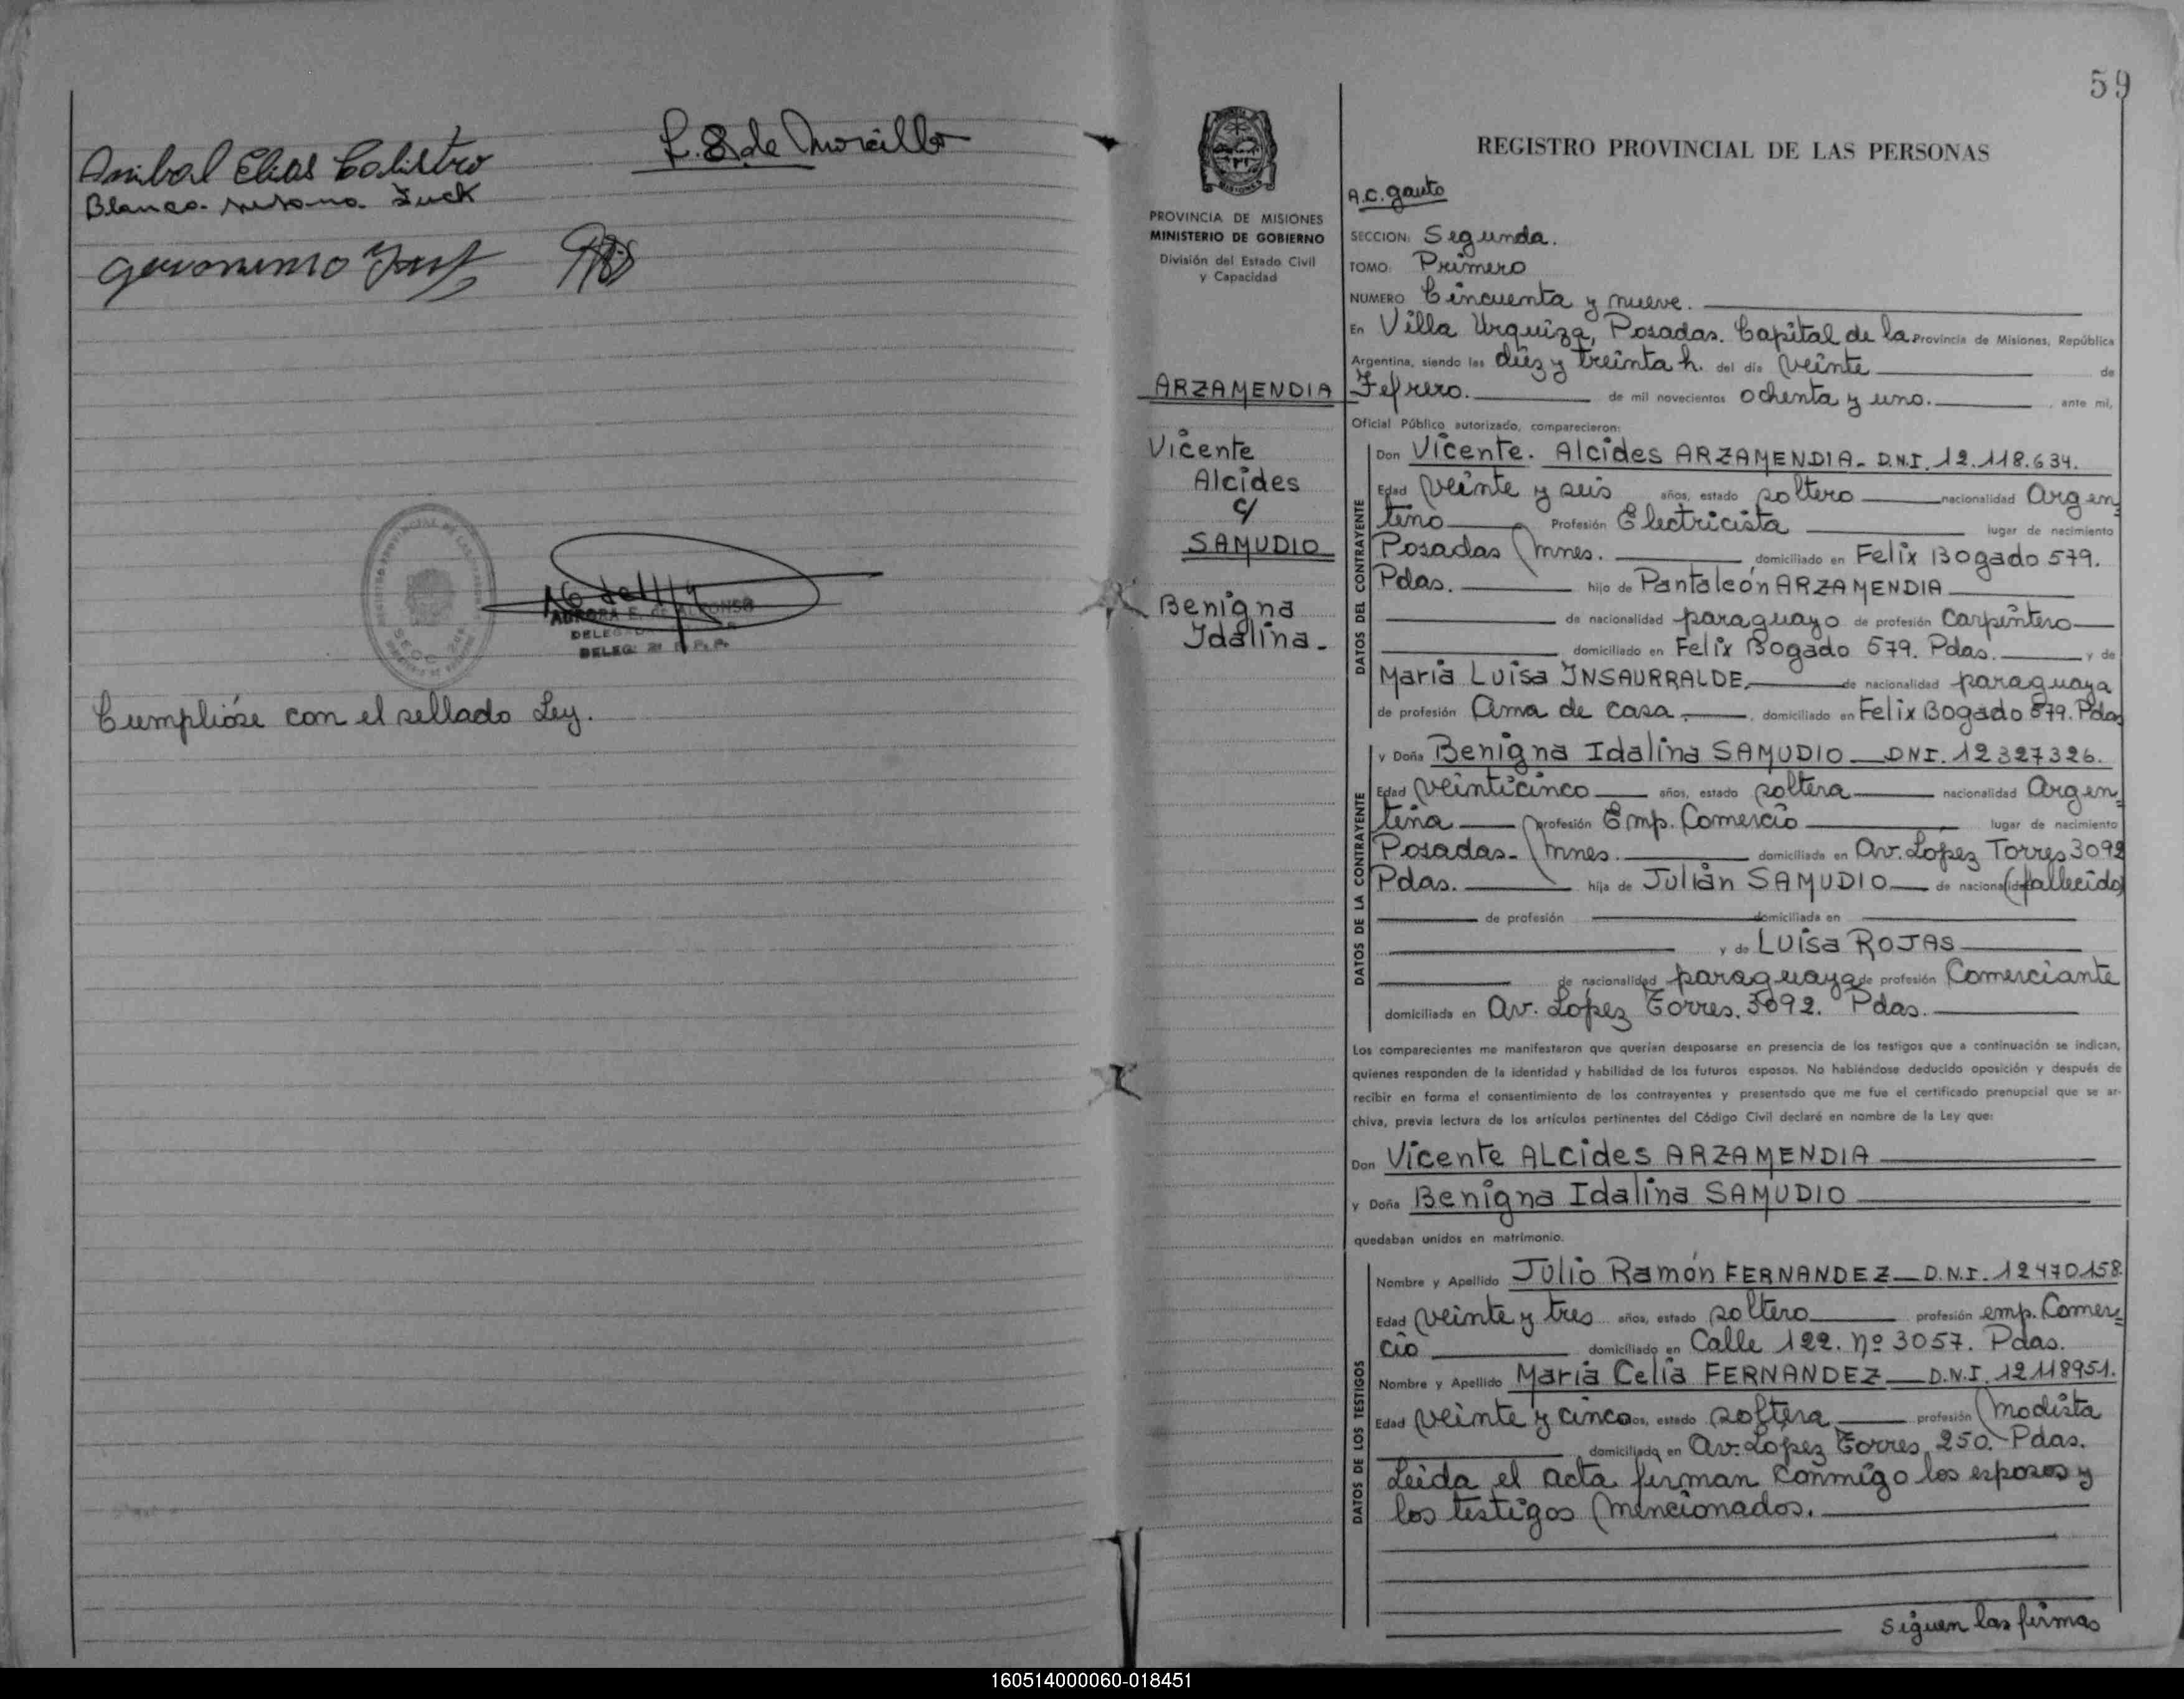 Anibal Elias Calistro
L. S. de Morcillo
Blanca Susana Zuck
Geronimo
AURORA E. DE ALFONSO
DELEG.
Cumplióse con el sellado Ley.
59
REGISTRO PROVINCIAL DE LAS PERSONAS
PROVINCIA DE MISIONES
MINISTERIO DE GOBIERNO
División del Estado Civil
y Capacidad
ARZAMENDIA
Vicente
Alcides
c/
SAMUDIO
Benigna
Idalina.
A.C. Gauto
SECCION: Segunda.
TOMO: Primero
NUMERO Cincuenta y nueve.
En Villa Urquiza, Posadas. Capital de la Provincia de Misiones, República
Argentina, siendo las diez y treinta h. del día Veinte de
Febrero. de mil novecientos ochenta y uno. , ante mí,
Oficial Público autorizado, comparecieron:
DATOS DEL CONTRAYENTE
Don Vicente. Alcides ARZAMENDIA. D.N.I. 12.118.634.
Edad Veinte y seis años, estado soltero nacionalidad Argen=
tino Profesión Electricista lugar de nacimiento
Posadas Mnes. domiciliado en Felix Bogado 579.
Pdas. hijo de Pantaleón ARZAMENDIA
de nacionalidad paraguayo de profesión Carpintero
domiciliado en Felix Bogado 579. Pdas. y de
Maria Luisa INSAURRALDE, de nacionalidad paraguaya
de profesión Ama de casa. , domiciliado en Felix Bogado 579. Pdas
DATOS DE LA CONTRAYENTE
y Doña Benigna Idalina SAMUDIO DNI. 12327326.
Edad Veinticinco años, estado soltera nacionalidad Argen=
tina profesión Emp. Comercio lugar de nacimiento
Posadas. Mnes. domiciliada en Av. Lopez Torres 3092
Pdas. hija de Julián SAMUDIO de nacionalidad (fallecido)
de profesión domiciliada en
y de Luisa ROJAS
de nacionalidad paraguaya de profesión Comerciante
domiciliada en Av. Lopez Torres. 3092. Pdas.
Los comparecientes me manifestaron que querían desposarse en presencia de los testigos que a continuación se indican,
quienes responden de la identidad y habilidad de los futuros esposos. No habiéndose deducido oposición y después de
recibir en forma el consentimiento de los contrayentes y presentado que me fue el certificado prenupcial que se ar-
chiva, previa lectura de los artículos pertinentes del Código Civil declaré en nombre de la Ley que:
Don Vicente ALcides ARZAMENDIA
y Doña Benigna Idalina SAMUDIO
quedaban unidos en matrimonio.
DATOS DE LOS TESTIGOS
Nombre y Apellido Julio Ramón FERNANDEZ D.N.I. 12470158.
Edad Veinte y tres años, estado soltero profesión emp. Comer=
cio domiciliado en Calle 122. Nº 3057. Pdas.
Nombre y Apellido Maria Celia FERNANDEZ D.N.I. 12118951.
Edad Veinte y cinco años, estado soltera profesión Modista
domiciliada en Av. Lopez Torres 250. Pdas.
Leida el acta firman conmigo los esposos y
los testigos mencionados.
Siguen las firmas
160514000060-018451